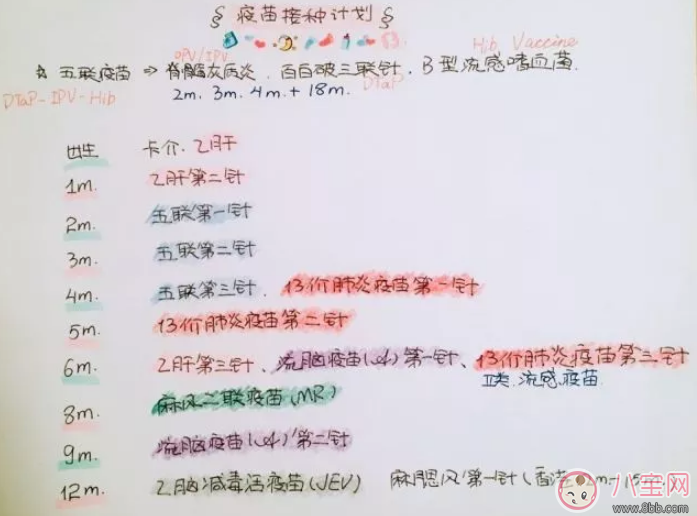 疫苗接种计划
OPV/IPV
Hib Vaccine
五联疫苗 ⇒ 脊髓灰质炎、百白破三联针、B型流感嗜血菌.
DTaP-IPV-Hib
2m. 3m. 4m. + 18m.
DTaP
出生 卡介、乙肝
1m. 乙肝第二针
2m. 五联第一针
3m. 五联第二针
4m. 五联第三针、13价肺炎疫苗第一针
5m. 13价肺炎疫苗第二针
6m. 乙肝第三针、流脑疫苗 第一针、13价肺炎疫苗第三针
流感疫苗
8m. 麻风二联疫苗(MR)
9m. 流脑疫苗 第二针
12m. 乙脑减毒活疫苗(JEV) 麻腮风第一针(香港
八宝网
www.8bb.com